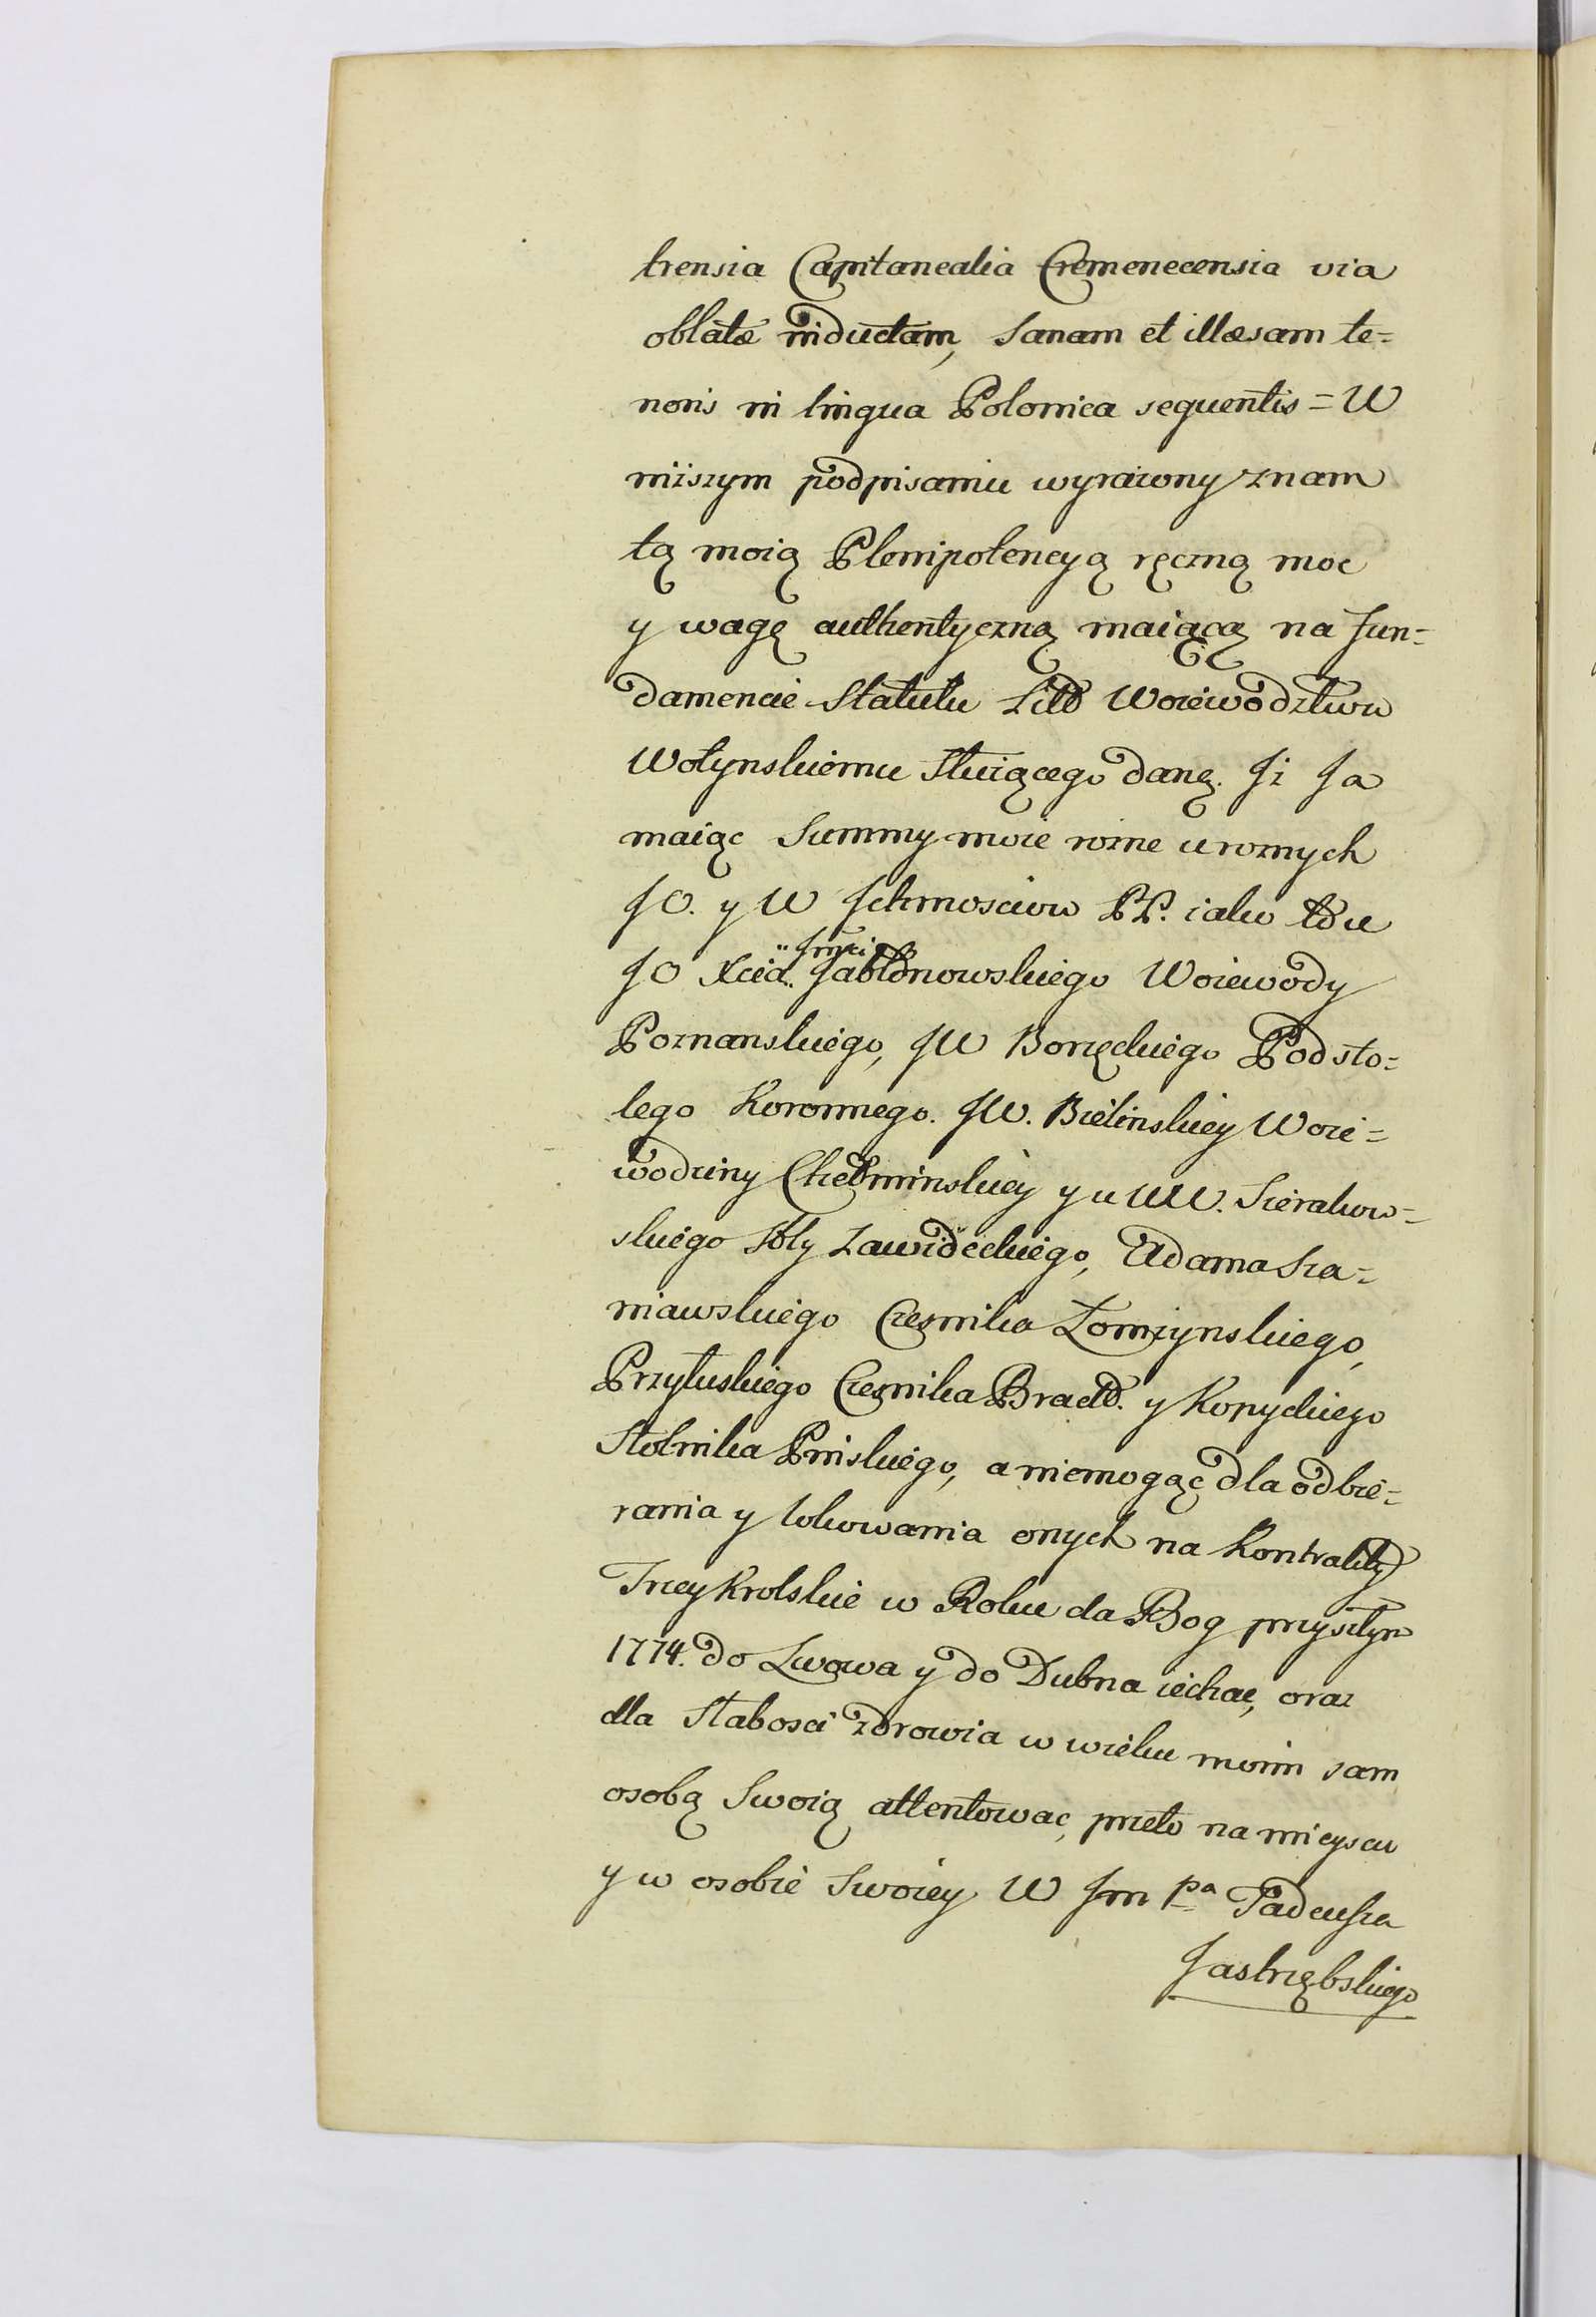 trensia Capitanealia Cremenecensia via
oblatæ inductam, Sanam et illæsam te=
noris in lingua Polonica sequentis = W
niższym podpisaniu wyrażony znam
tą moią Plenipotencyą ręczną moc
y wagę authentyczną maiącą na fun=
damencie Statutu Litt Woiewodztwu
Wołynskiemu Służącego daną. Jż Ja
maiąc Summy moie rożne u rożnych
JO. y W Jchmosciow PP. iako to u
JO Xcia Jmści Jabłonowskiego Woiewody
Poznanskiego, JW Borzęckiego Podsto=
lego Koronnego. JW. Bielinskiey Woie=
wodziny Chełminskiey y u WW. Sierakow=
skiego Stty Zawideckiego, Adama Sza=
niawskiego Czesnika Łomżynskiego,
Przyłuskiego Czesnika Bracld. y Kopyckiego
Stolnika Pinskiego, a niemogąc dla odbie=
rania y lokowania onych na Kontrakty
Trzey Krolskie w Roku da Bog przyszłym
1774. do Lwowa y do Dubna iechac, oraz
dla Słabosci zdrowia w wieku moim sam
osobą Swoią attentowac, przeto na mieyscu
y w osobie Swoiey W Jm pa Tadeusza
Jastrzębskiego